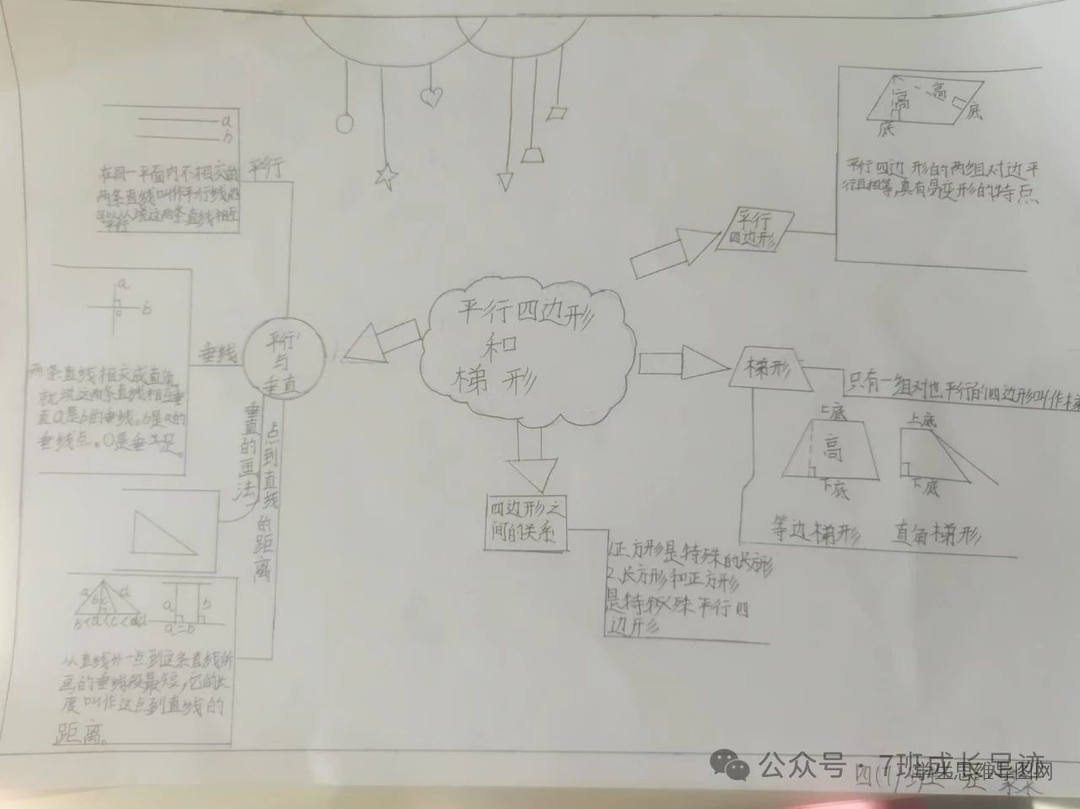 平行四边形
和
梯形
平行
与
垂直
平行
a
b
在同一平面内不相交的
两条直线叫作平行线,也
可以说这两条直线相互
平行
垂线
a
b
o
两条直线相交成直角,
就说这两条直线相互垂
直a是b的垂线,b是a的
垂线点。O是垂足。
垂直的画法
点到直线的距离
a b c d
b<a<c<d
a b
a=b
从直线外一点到这条直线所
画的垂线段最短,它的长
度叫作这点到直线的
距离。
平行
四边形
高
高
底
底
平行四边形的两组对边平
行且相等,具有易变形的特点
梯形
只有一组对边平行的四边形叫作梯
上底
高
下底
等边梯形
上底
下底
直角梯形
四边形之
间的关系
1.正方形是特殊的长方形
2.长方形和正方形
是特殊平行四
边形
公众号·7班成长足迹
四(1)班